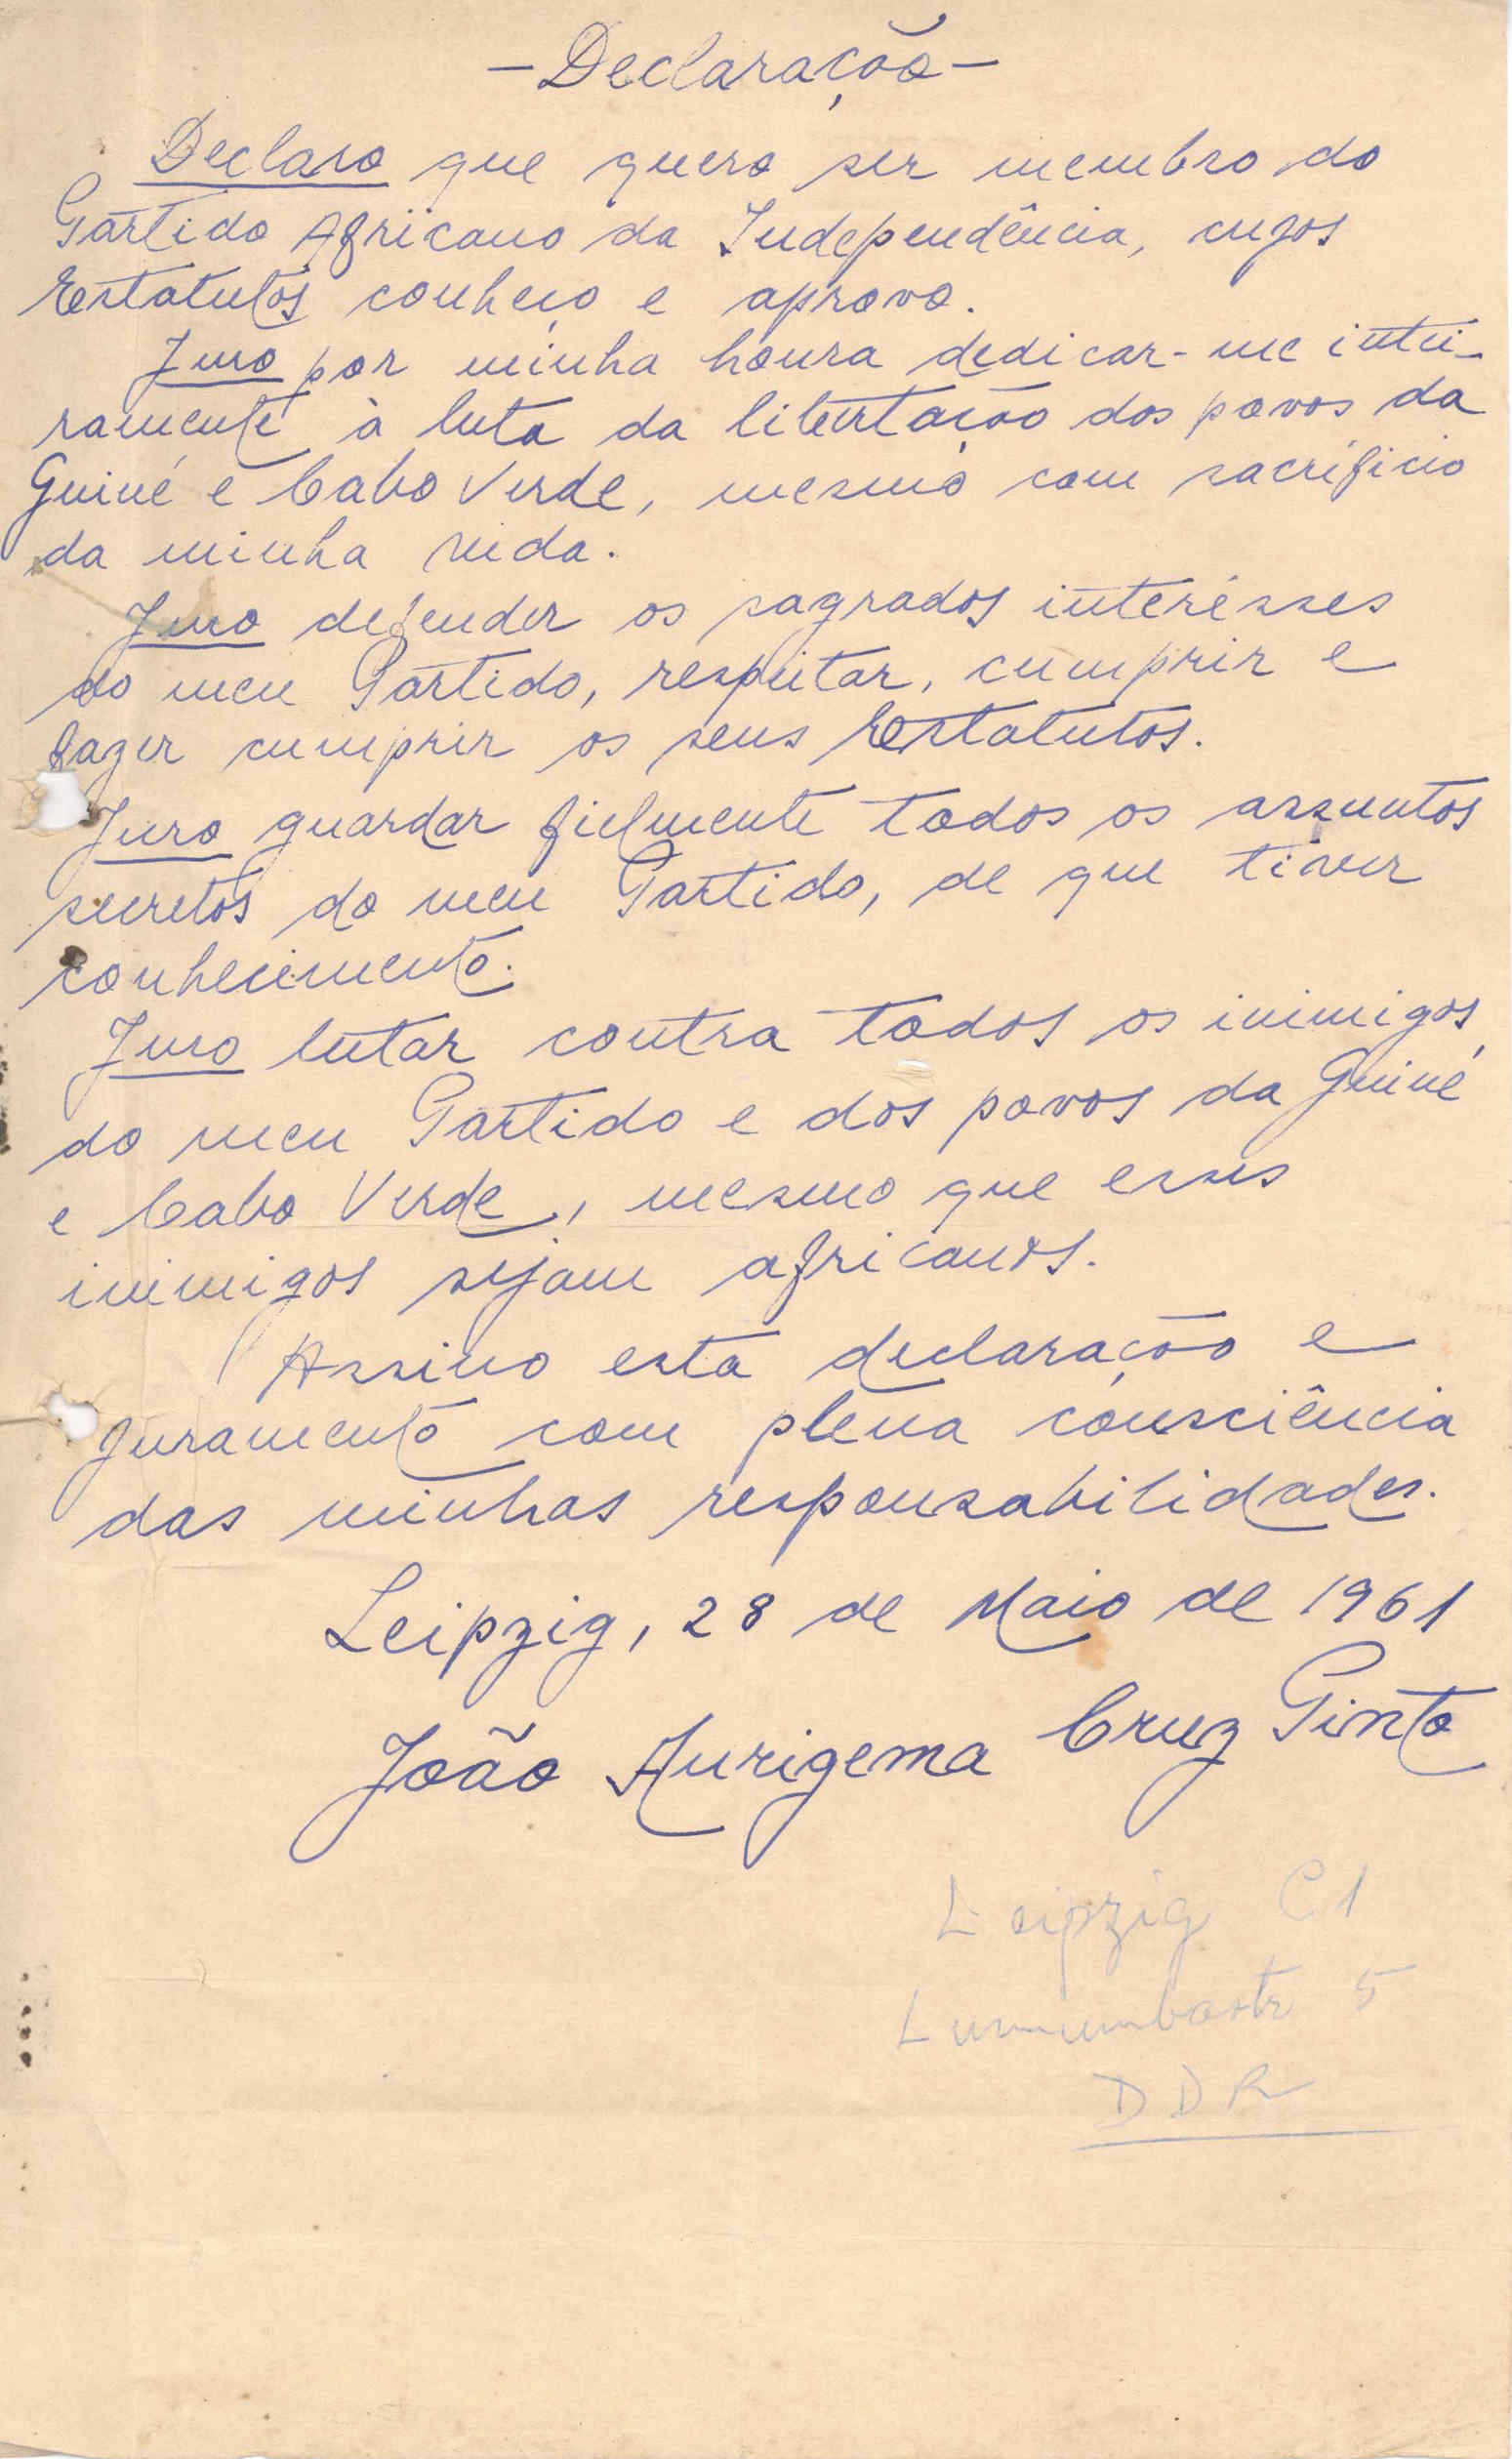 - Declaração -
Declaro que quero ser membro do
Partido Africano da Independência, cujos
Estatutos conheço e aprovo.
Juro por minha honra dedicar-me intei-
ramente à luta da libertação dos povos da
Guiné e Cabo Verde, mesmo com sacrifício
da minha vida.
Juro defender os sagrados interésses
do meu Partido, respeitar, cumprir e
fazer cumprir os seus Estatutos.
Juro guardar fielmente todos os assuntos
secretos do meu Partido, de que tiver
conhecimento.
Juro lutar contra todos os inimigos
do meu Partido e dos povos da Guiné
e Cabo Verde, mesmo que esses
inimigos sejam africanos.
Assino esta declaração e
juramento com plena consciência
das minhas responsabilidades.
Leipzig, 28 de Maio de 1961
João Aurigema Cruz Pinto
Leipzig C1
Lumumbastr 5
DDR